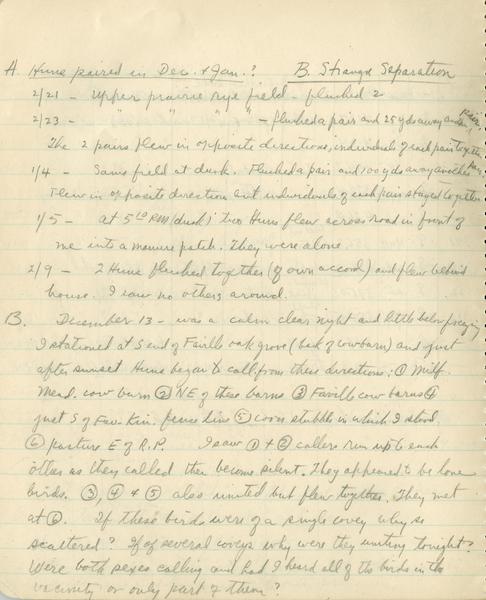 A. Huns paired in Dec. & Jan.? B. Strange Separation
2/21 - Upper prairie rye field - flushed 2
2/23 - " " " " - flushed a pair and 25 yds away another pair.
The 2 pairs flew in opposite directions, individuals of each pair together
1/4 - Same field at dusk. Flushed a pair and 100 yds away another pair.
Flew in opposite direction but individuals of each pair stayed together.
1/5 - at 5 PM (dusk) two Huns flew across road in front of
me into a manure patch. They were alone.
2/9 - 2 Huns flushed together (of own accord) and flew behind
house. I saw no others around.
B. December 13 - was a calm clear night and little below freezing
I stationed at S end of Faville oak grove (back of cow barn) and just
after sunset Huns began to call from these directions: ① Milf.
Mead. cow barn ② NE of these barns ③ Faville cow barns ④
just S of Fav-Kin. fence line ⑤ corn stubble in which I stood
⑥ pasture E of R.P. I saw ① & ② callers run up to each
other as they called then become silent. They appeared to be lone
birds. ③, ④ & ⑤ also united but flew together. They met
at ⑥. If these birds were of a single covey why so
scattered? If of several coveys why were they uniting tonight?
Were both sexes calling and had I heard all of the birds in the
vicinity or only part of them?